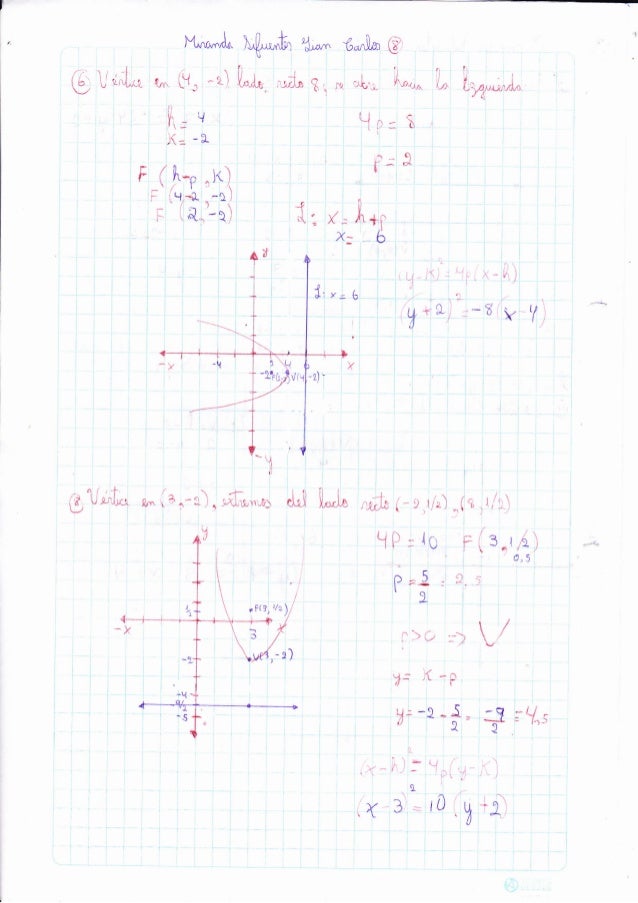 Miranda Sifuentes Jian Carlos ⑧
⑥ Vértice en (4, -2) lado recto 8, se abre hacia la Izquierda
h = 4
K = -2
4p = 8
p = 2
F (h-p, K)
F (4-2, -2)
F (2, -2)
L: x = h+p
x = 6
y
L: x = 6
(y-K)² = 4p(x-h)
(y+2)² = -8(x-4)
-x -4 2 4 6 x
-2 V(4,-2)
-y
⑧ Vértice en (3,-2), extremos del lado recto (-2, 1/2), (8, 1/2)
y
4P = 10 F(3, 1/2)
0,5
p = 5/2 = 2,5
½ F(3, 1/2)
-x 3 x
p>0 =>
-2 V(3,-2)
y = K - p
-4
-9/2
-5
y = -2 - 5/2 = -9/2 = -4,5
(x-h)² = 4p(y-K)
(x-3)² = 10(y+2)